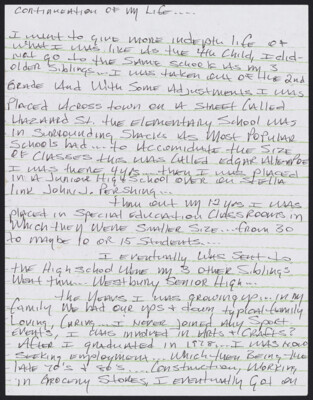 Continuation of my Life.....
I want to give more indepth life of
what I was like as the 4th child, I did-
not go to the same schools as my 3
older siblings... I was taken out of the 2nd
Grade and with some adjustments I was
Placed across town on a street called
Hazard St. the elementary school was
in surrounding shacks as most popular
schools had... to accomidate the size
of classes this was called Edgar
I was there 4yrs... then I was placed
in a Junior High School over on Stella
link John J. Pershing...
thru out my 12 yrs I was
placed in special education classrooms in
which they were smaller size... from 30
to maybe 10 or 15 students...
I eventually was sent to
the High school where my 3 other siblings
went thru... Westbury Senior High...
the years I was growing up... in my
family we had our ups & down typical family
loving, caring... I never joined any sport
events, I was involved in Arts & Crafts?
After I graduated in 1978... I was now
seeking employment... which then being the
late 70's & 80's..... construction, working
in Grocery stores, I eventually got on